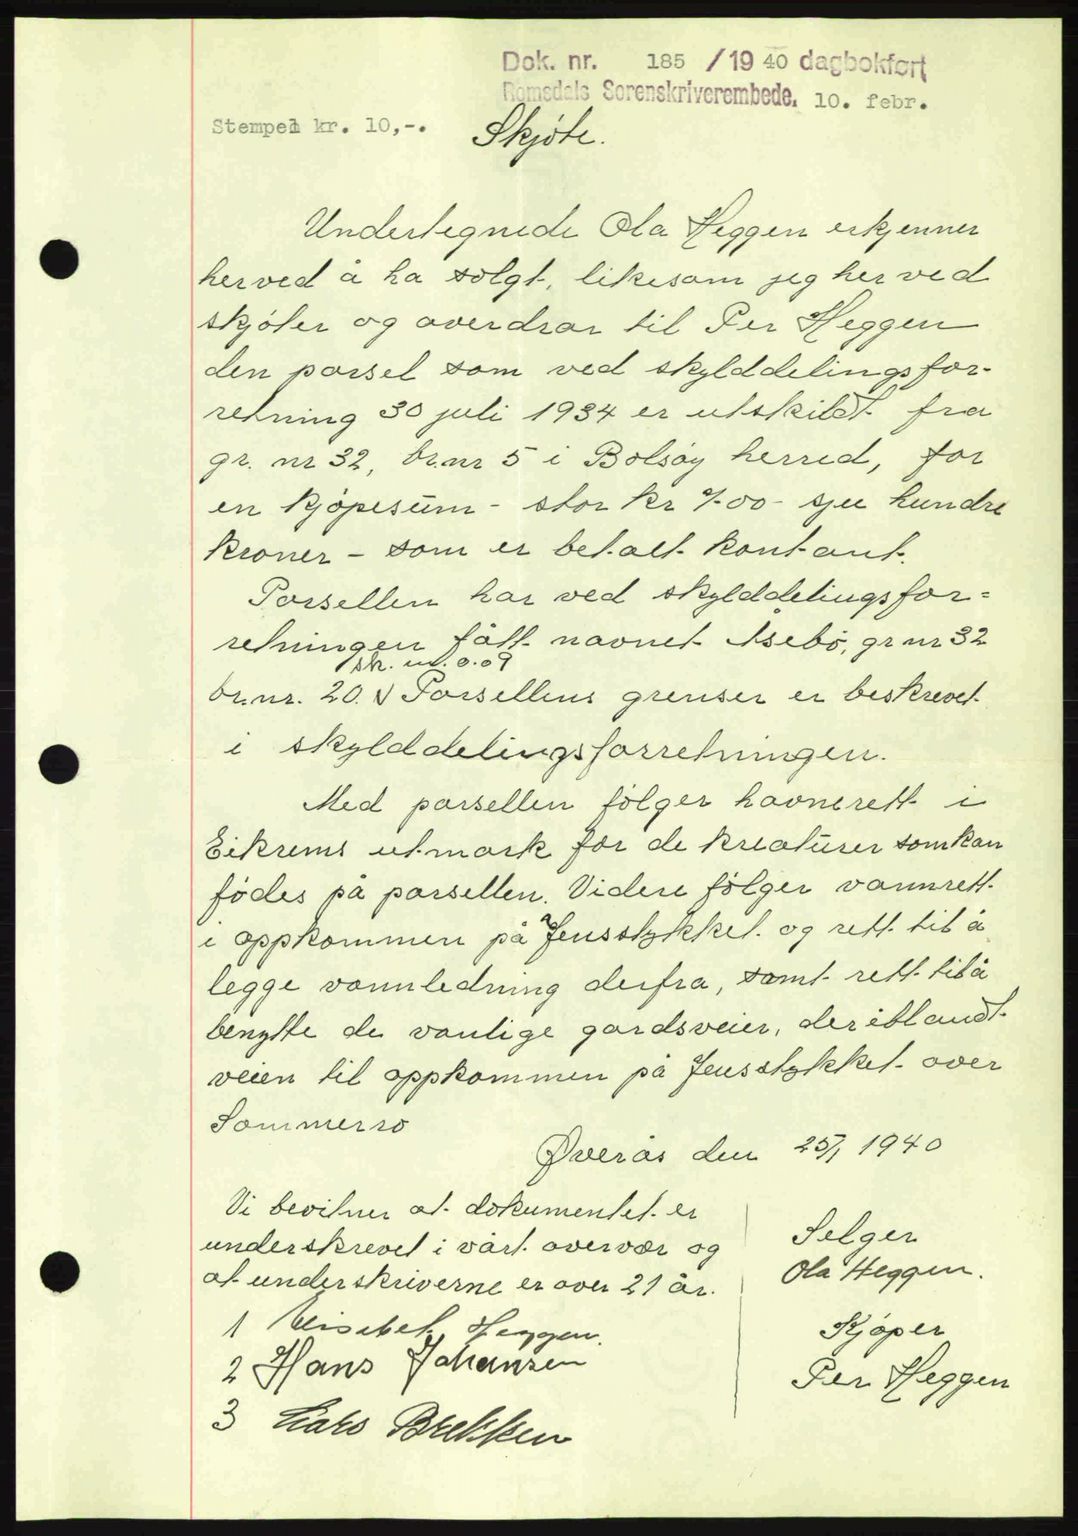 Dok. nr. 185 / 1940 dagbokført
Romsdals Sorenskriverembede. 10. febr.
Stempel kr. 10,-. Skjøte.
Undertegnede Ola Heggen erkjenner
herved å ha solgt, likesom jeg herved
skjøter og overdrar til Per Heggen
den parsel som ved skylddelingsfor-
retning 30 juli 1934 er utskildt fra
gr. nr 32, br.nr 5 i Bolsøy herred, for
en kjøpesum - stor kr 700 - sju hundre
kroner - som er betalt kontant.
Parsellen har ved skylddelingsfor=
retningen fått navnet Åsebø, gr nr 32
sk. m. 0.09
br.nr. 20. V Parsellens grenser er beskrevet
i skylddelingsforretningen.
Med parsellen følger havnerett i
Eikrems utmark for de kreaturer som kan
fødes på parsellen. Videre følger vannrett
i oppkommen på Jensstykket og rett til å
legge vannledning derfra, samt rett til å
benytte de vanlige gardsveier, deriblandt
veien til oppkommen på Jensstykket over
Sommerro
Øverås den 25/1 1940
Vi bevitner at dokumentet er
underskrevet i vårt overvær og
at underskriverne er over 21 år.
1 Elisabet Heggen.
2 Hans Johansen
3 Lars Brekken
Selger
Ola Heggen.
Kjøper
Per Heggen